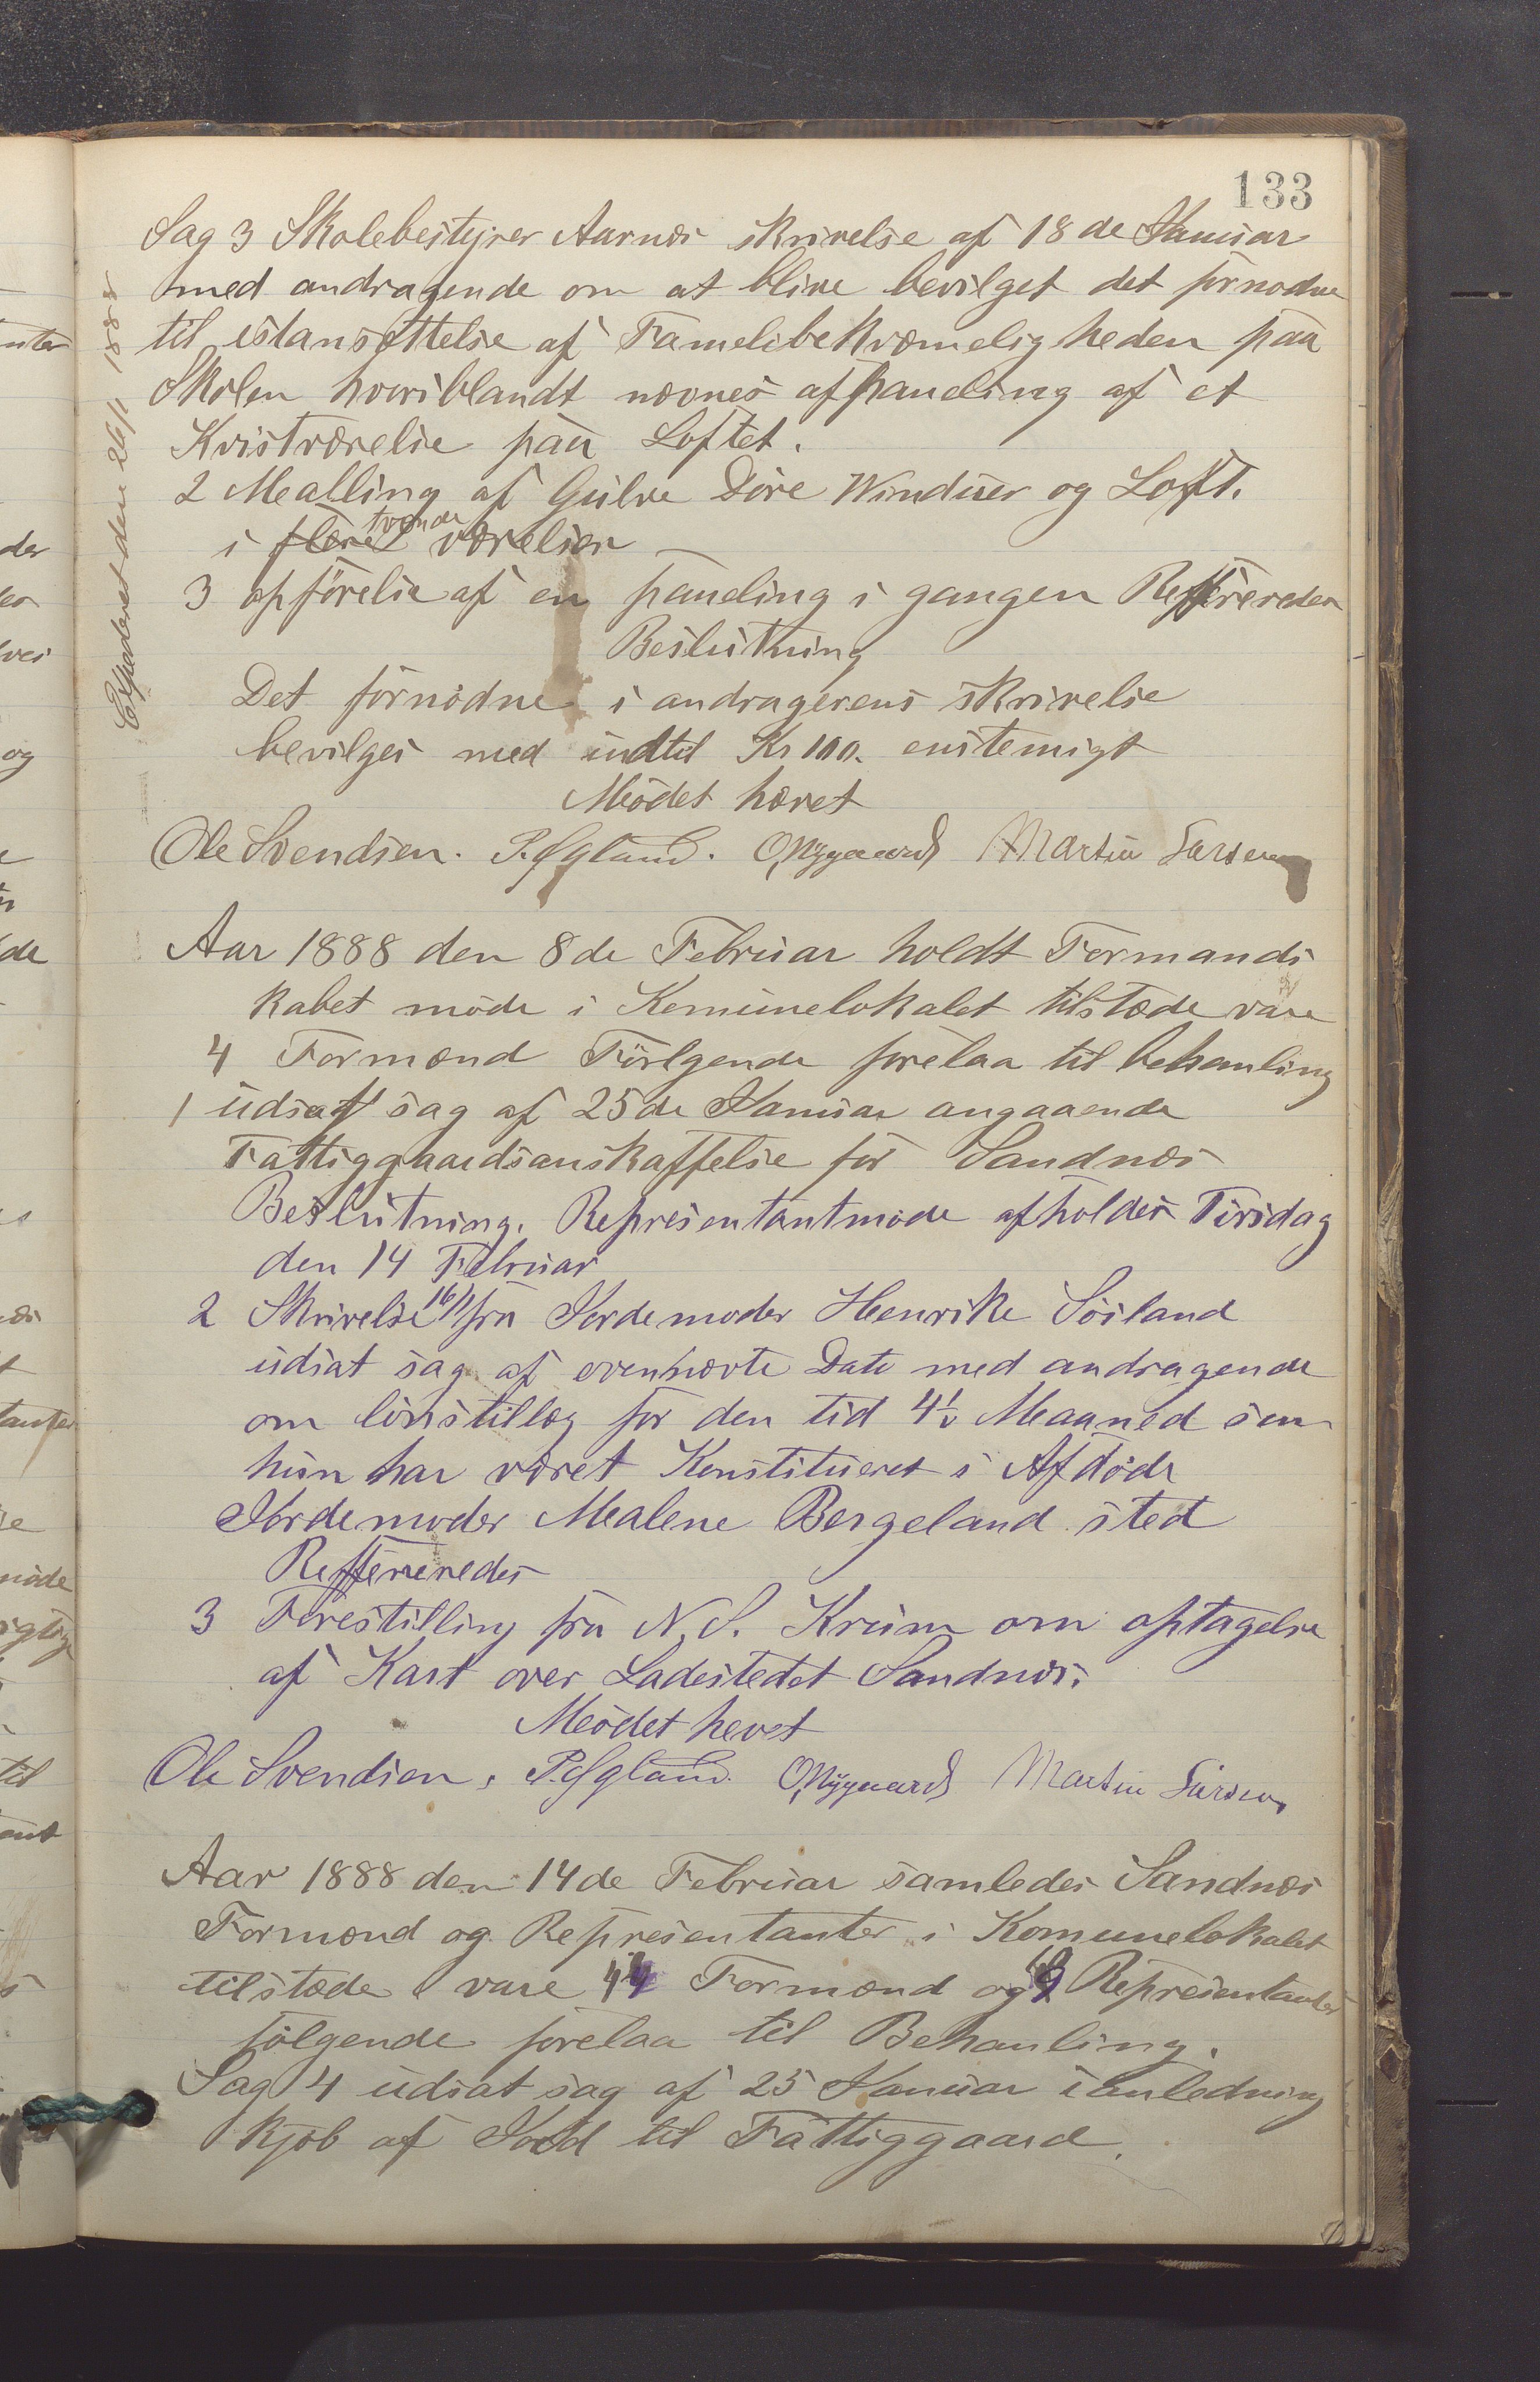 133
Sag 3 Skolebestyrer Aarnæs skrivelse af 18de Januar
med andragende om at blive bevilget det fornødne
til istansættelse af Famelibekvæmeligheden paa
Skolen hvoriblandt nævnes afpaneling af et
Kvistværelse paa Loftet.
2 Malling af Gulve Døre Winduer og Loft.
i flere tvende værelser
3 opførelse af en paneling i gangen Reffereredes
Beslutning
Det fornødne i andragerens skrivelse
bevilges med indtil Kr 100. enstemigt
Mödet hævet
Ole Svendsen. P. Egland. O. Nygaard Martin Larsen
Expederet den 26/1 1888
Aar 1888 den 8de Februar holdt Formands
kabet møde i Komunelokalet tilstæde vare
4 Formænd Følgende forelaa til behanling
1 udsat sag af 25de Januar angaaende
Fattiggaardsanskaffelse for Sandnæs
Beslutning. Representantmøde afholdes Tirsdag
den 14 Februar
2 Skrivelse 16/1 fra Jordemoder Henrike Soiland
udsat sag af ovennævte Dato med andragende
om lönstillæg for den tid 4½ Maaned som
hun har været Konstitueret i Afdøde
Jordemoder Malene Bergeland sted
Reffereredes
3 Forestilling fra N. S. Krum om optagelse
af Kart over Ladestedet Sandnæs.
Mødet hevet
Ole Svendsen. P. Egland. O. Nygaard Martin Larsen.
Aar 1888 den 14de Februar samledes Sandnæs
Formænd og Representanter i Komunelokalet
tilstæde vare 4 Formænd og 9 Representanter
følgende forelaa til Behanling.
Sag 4 udsat sag af 25 Januar i anledning
kjøb af Jord til Fattiggaard.